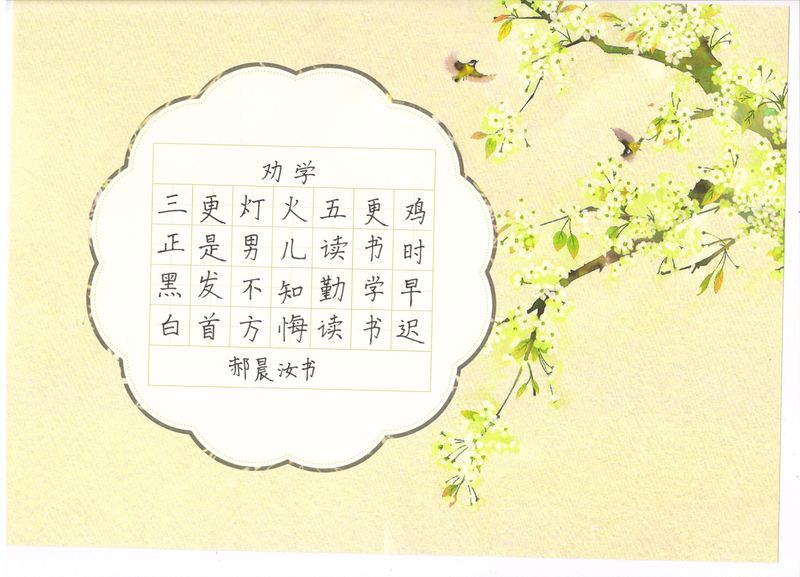 劝学
三更灯火五更鸡
正是男儿读书时
黑发不知勤学早
白首方悔读书迟
郝晨汝书